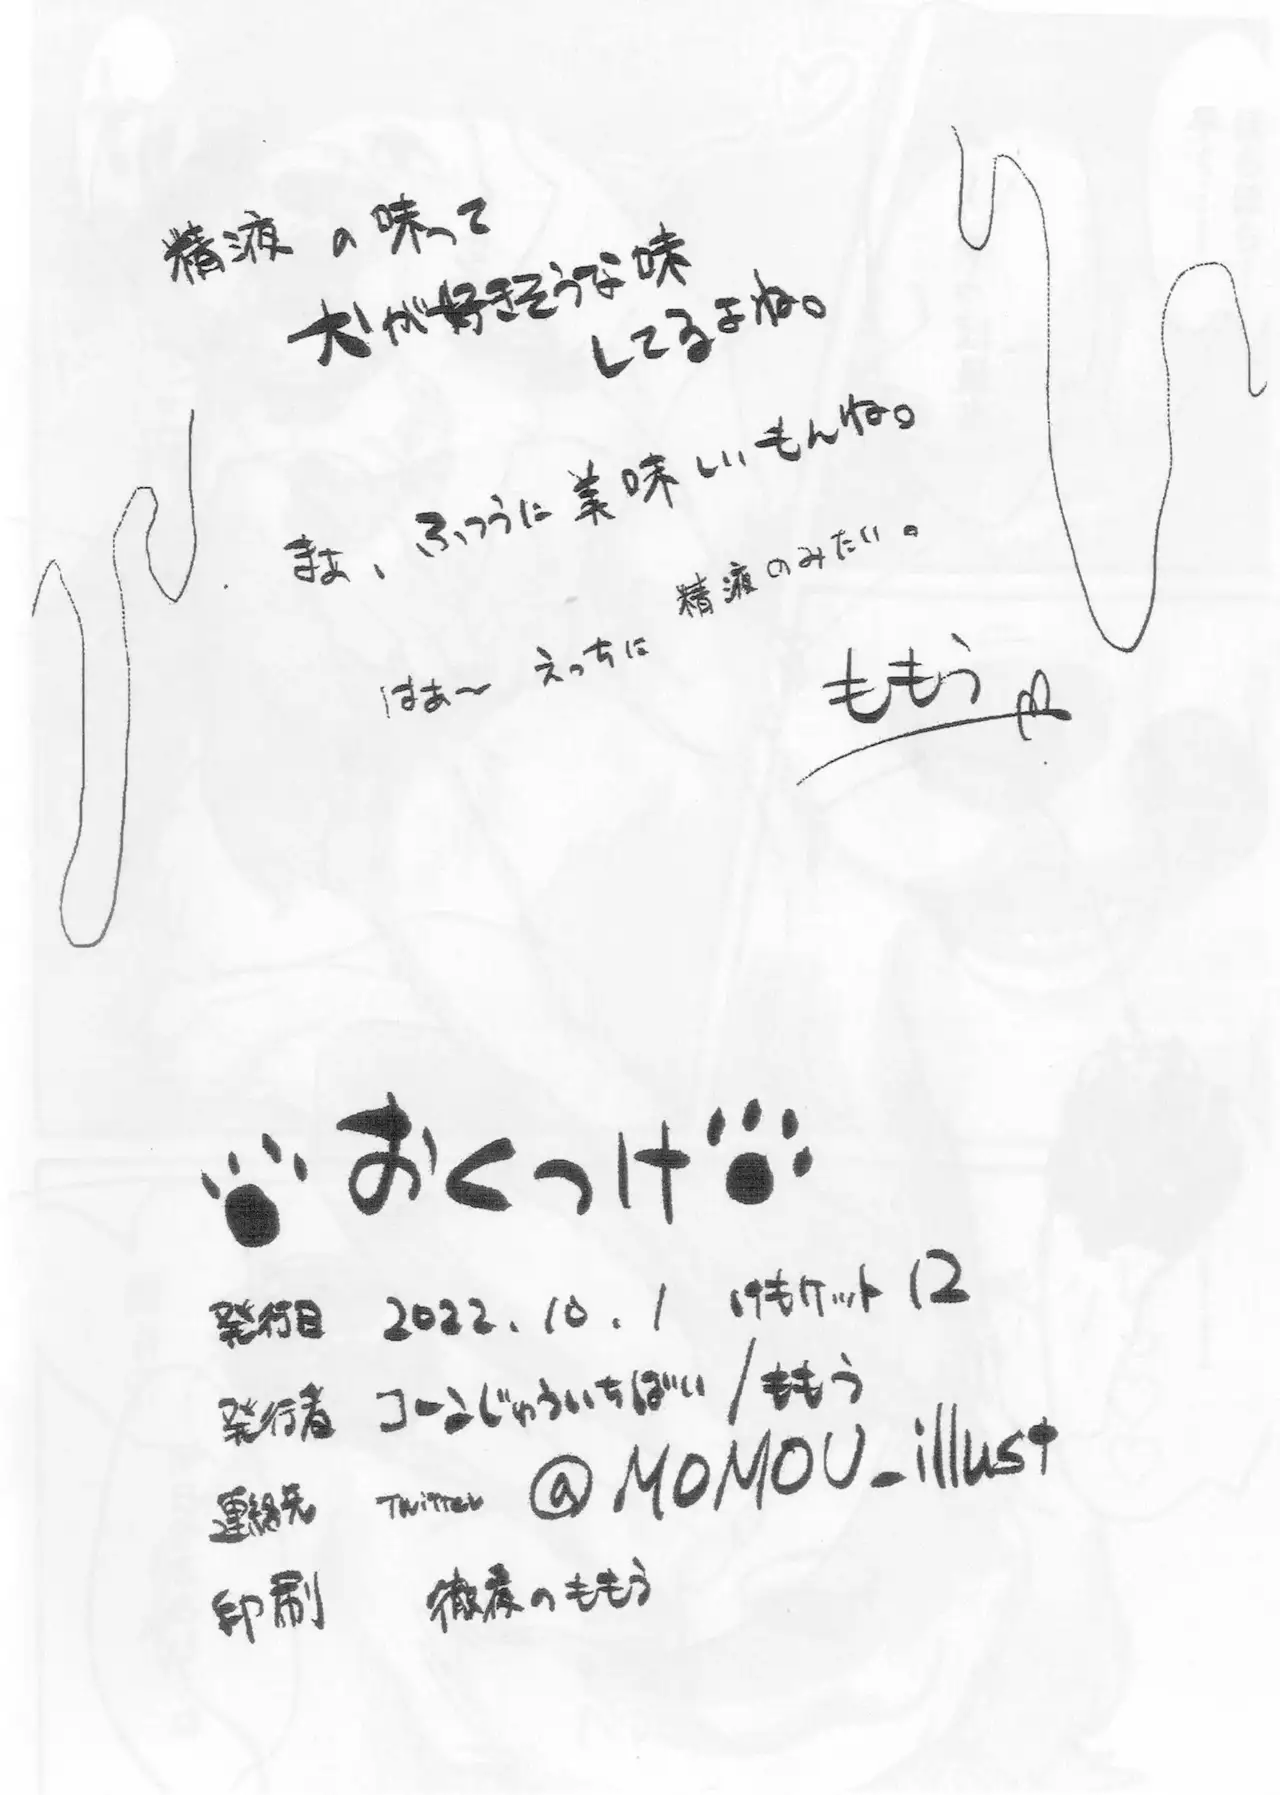 精液の味って
犬が好きそうな味
してるよね。
まぁ、ふつうに美味しいもんね。
はぁ〜 えっちに 精液のみたい。
ももう
おくつけ
発行日 2022.10.1 けもケット12
発行者 コーンじゅういちばい/ももう
連絡先 Twitter @MOMOU_illust
印刷 徹夜のももう